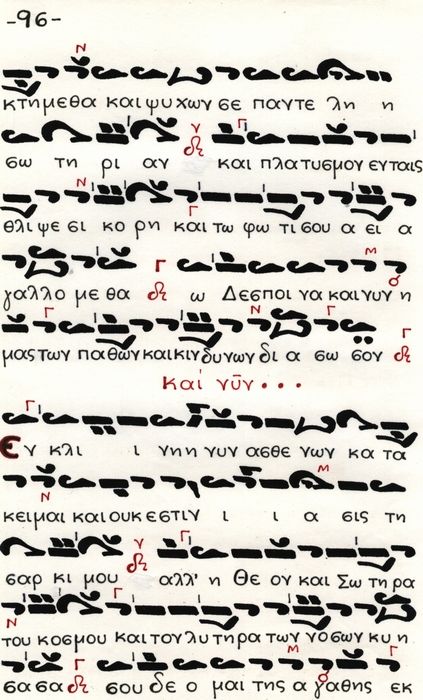 -96-
κτημεθα και ψυχων σε παντε λη η
σω τη ρι αν και πλατυσμον ενταις
θλιψεσι κο ρη και τω φω τι σου α ει α
γαλλο με θα ω Δεσποι να και νυν η
μας των παθων και κινδυνων δι α σω σον
και νῦν...
Εν κλι ι νη η νυν ασθε νων κα τα
κειμαι και ουκ εστιν ι ι α σις τη
σαρ κι μου αλλ' η Θε ον και Σω τη ρα
του κοσμου και τον λυτηρα των νοσων κυ η
σα σα σου δε ο μαι της α γαθης εκ